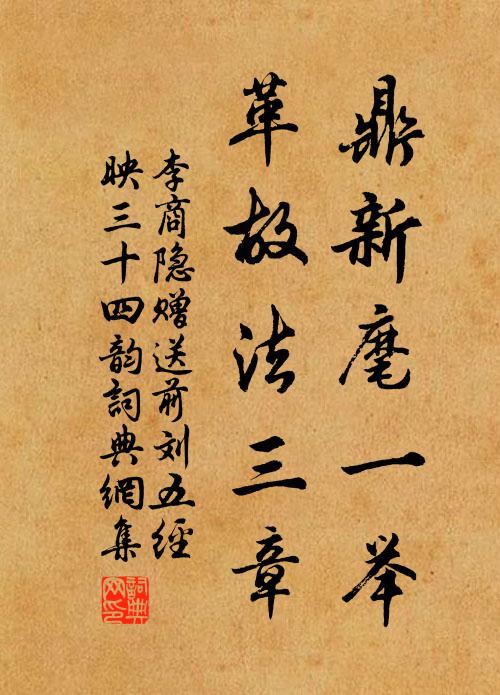 鼎新麾一举
革故法三章
李商隐赠送前刘五經
映三十四韵詞典網集
詞典网印